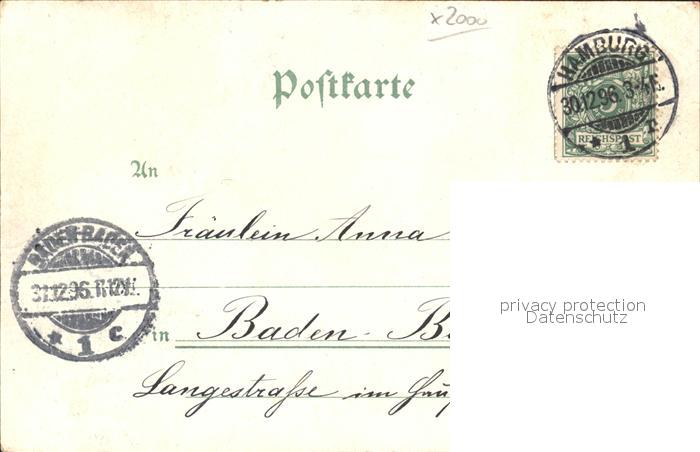 x2000
Postkarte
HAMBURG
30.12.96. 3-4N.
* 1 c.
REICHSPOST
An
Fräulein Anna
BADEN-BADEN
31.12.96. 11-12V.
* 1 c.
privacy protection
Datenschutz
in Baden-
Langestraße im